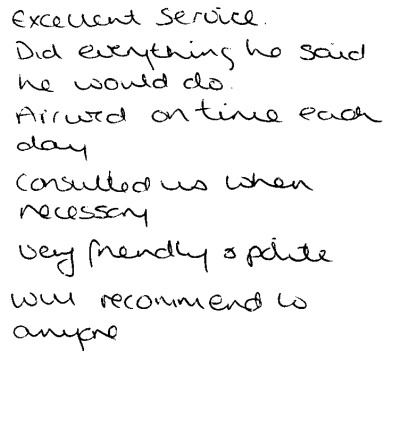 Excellent service.
Did everything he said
he would do.
Arrived on time each
day
Consulted us when
necessary
very friendly & polite
will recommend to
anyone